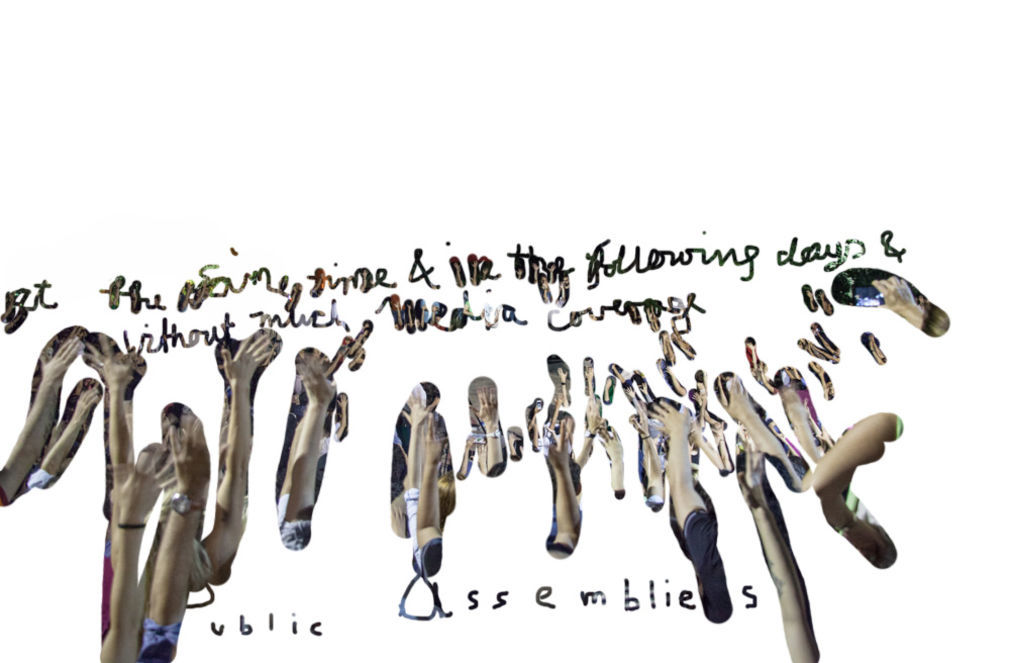 at the same time & in the following days &
without much media coverage
public assemblies